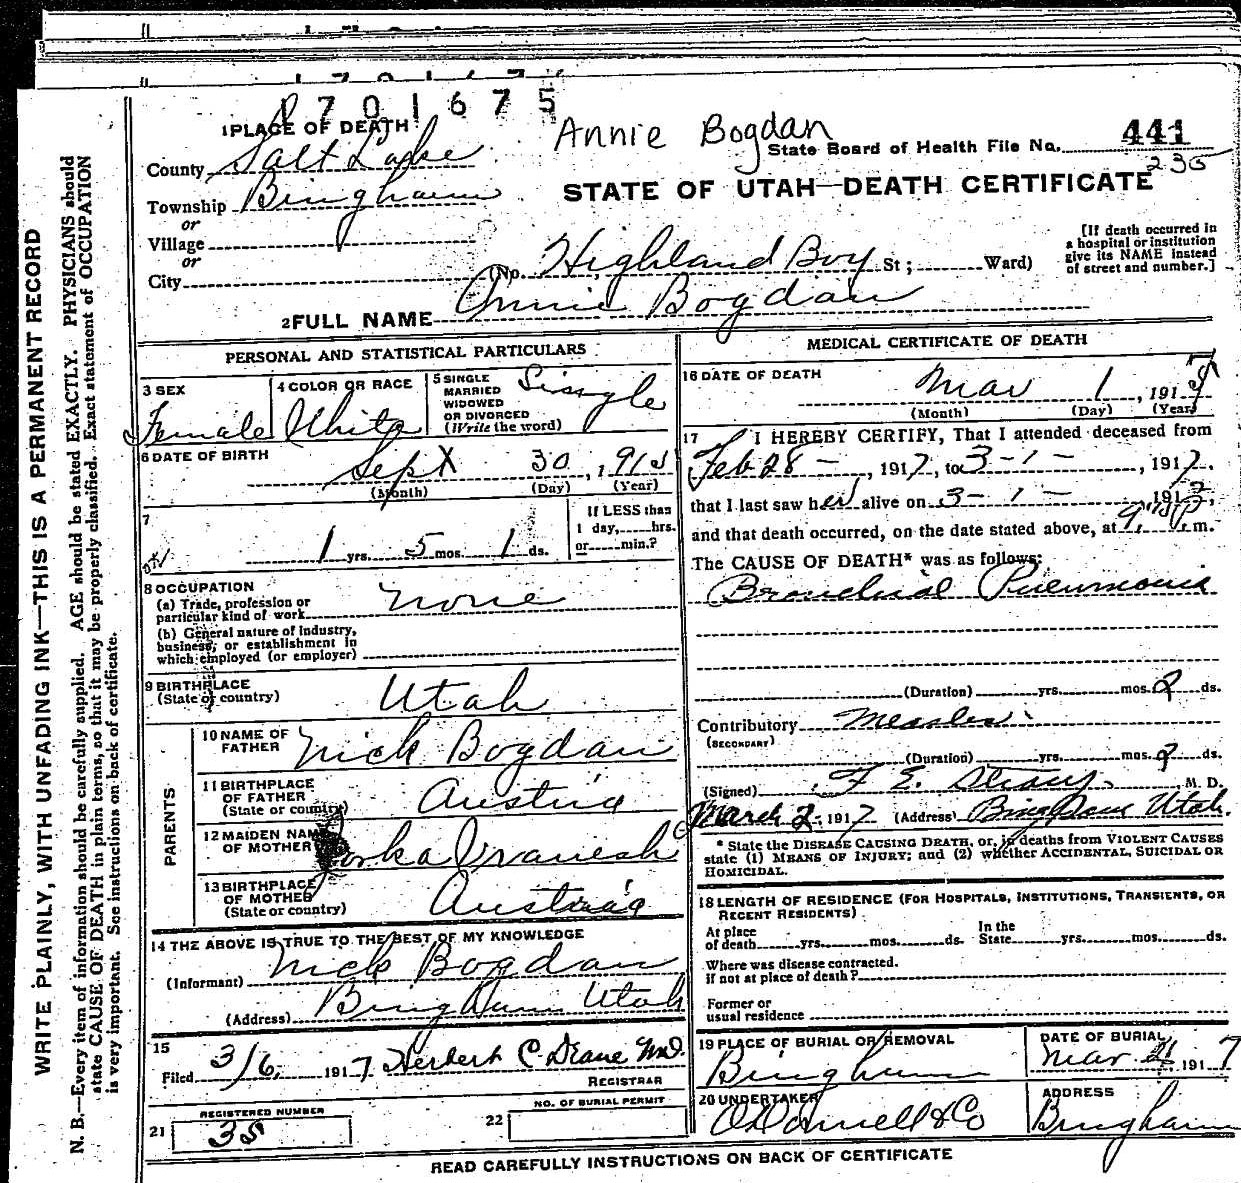 1701675
1 PLACE OF DEATH
Annie Bogdan
State Board of Health File No. 441
235
County Salt Lake
STATE OF UTAH—DEATH CERTIFICATE
Township Bingham
or
Village
or
City
(No. Highland Boy St; Ward)
[If death occurred in
a hospital or institution
give its NAME instead
of street and number.]
2 FULL NAME Annie Bogdan
PERSONAL AND STATISTICAL PARTICULARS
3 SEX
Female
4 COLOR OR RACE
White
5 SINGLE
MARRIED
WIDOWED
OR DIVORCED
(Write the word)
Single
6 DATE OF BIRTH
Sept 30, 1915
(Month) (Day) (Year)
7
1 yrs. 5 mos. 1 ds.
If LESS than
1 day, hrs.
or min.?
8 OCCUPATION
(a) Trade, profession or
particular kind of work none
(b) General nature of Industry,
business, or establishment in
which employed (or employer)
9 BIRTHPLACE
(State or country)
Utah
PARENTS
10 NAME OF
FATHER
Nick Bogdan
11 BIRTHPLACE
OF FATHER
(State or country)
Austria
12 MAIDEN NAME
OF MOTHER
Vranesh
13 BIRTHPLACE
OF MOTHER
(State or country)
Austria
14 THE ABOVE IS TRUE TO THE BEST OF MY KNOWLEDGE
(Informant) Nick Bogdan
(Address) Bingham Utah
15
Filed 3/6, 1917 Herbert C. Deane M.D.
REGISTRAR
REGISTERED NUMBER
21 35
NO. OF BURIAL PERMIT
22
MEDICAL CERTIFICATE OF DEATH
16 DATE OF DEATH
Mar 1, 1917
(Month) (Day) (Year)
17 I HEREBY CERTIFY, That I attended deceased from
Feb 28 -, 1917, to 3-1-, 1917,
that I last saw her alive on 3-1-, 1917,
and that death occurred, on the date stated above, at m.
The CAUSE OF DEATH* was as follows:
Bronchial Pneumonia
(Duration) yrs. mos. 2 ds.
Contributory Measles
(SECONDARY)
(Duration) yrs. mos. 2 ds.
(Signed) F. E. Straup M. D.
March 2, 1917 (Address) Bingham Utah.
* State the DISEASE CAUSING DEATH, or, in deaths from VIOLENT CAUSES
state (1) MEANS OF INJURY; and (2) whether ACCIDENTAL, SUICIDAL OR
HOMICIDAL.
18 LENGTH OF RESIDENCE (FOR HOSPITALS, INSTITUTIONS, TRANSIENTS, OR
RECENT RESIDENTS)
At place
of death yrs. mos. ds.
In the
State yrs. mos. ds.
Where was disease contracted.
if not at place of death?
Former or
usual residence
19 PLACE OF BURIAL OR REMOVAL
Bingham
DATE OF BURIAL
Mar. 1917
20 UNDERTAKER
O'Donnell & Co
ADDRESS
Bingham
READ CAREFULLY INSTRUCTIONS ON BACK OF CERTIFICATE
WRITE PLAINLY, WITH UNFADING INK—THIS IS A PERMANENT RECORD
N. B.—Every item of information should be carefully supplied. AGE should be stated EXACTLY. PHYSICIANS should
state CAUSE OF DEATH in plain terms, so that it may be properly classified. Exact statement of OCCUPATION
is very important. See instructions on back of certificate.